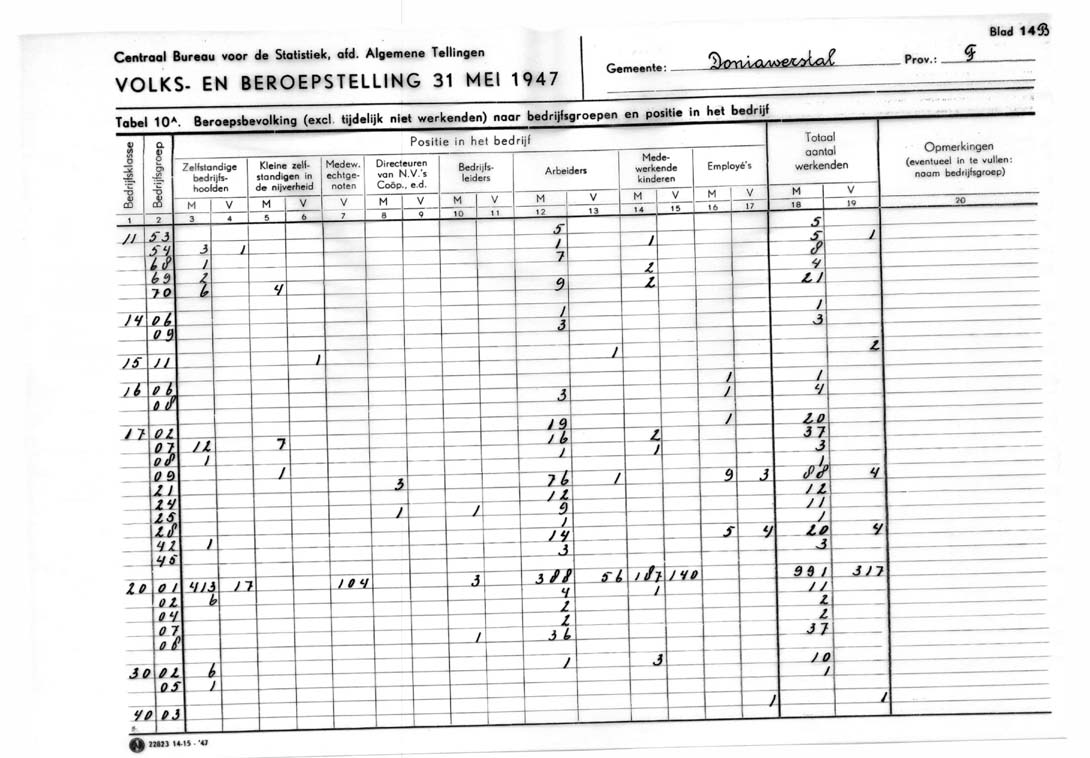 Blad 14B
Centraal Bureau voor de Statistiek, afd. Algemene Tellingen
VOLKS- EN BEROEPSTELLING 31 MEI 1947
Gemeente: Doniawerstal Prov.: F
Tabel 10A. Beroepsbevolking (excl. tijdelijk niet werkenden) naar bedrijfsgroepen en positie in het bedrijf
Bedrijfsklasse
Bedrijfsgroep
Positie in het bedrijf
Zelfstandige
bedrijfs-
hoofden
Kleine zelf-
standigen in
de nijverheid
Medew.
echtge-
noten
Directeuren
van N.V.'s
Coöp., e.d.
Bedrijfs-
leiders
Arbeiders
Mede-
werkende
kinderen
Employé's
Totaal
aantal
werkenden
Opmerkingen
(eventueel in te vullen:
naam bedrijfsgroep)
M V M V V M V M V M V M V M V M V
1 2 3 4 5 6 7 8 9 10 11 12 13 14 15 16 17 18 19 20
11 53 5 5
54 3 1 1 1 5 1
68 1 7 8
69 2 2 4
70 6 4 9 2 21
14 06 1 1
09 3 3
15 11 1 1 2
16 06 1 1
08 3 1 4
17 02 19 1 20
07 12 7 16 2 37
08 1 1 1 3
09 1 1
21 3 76 1 9 3 88 4
24 12 12
25 1 1 9 11
28 1 1
42 1 14 5 4 20 4
45 3 3
20 01 413 17 104 3 388 56 187 140 991 317
02 6 4 1 11
04 2 2
07 2 2
08 1 36 37
30 02 6 1 3 10
05 1 1
40 03 1 1
22823 14-15 - '47